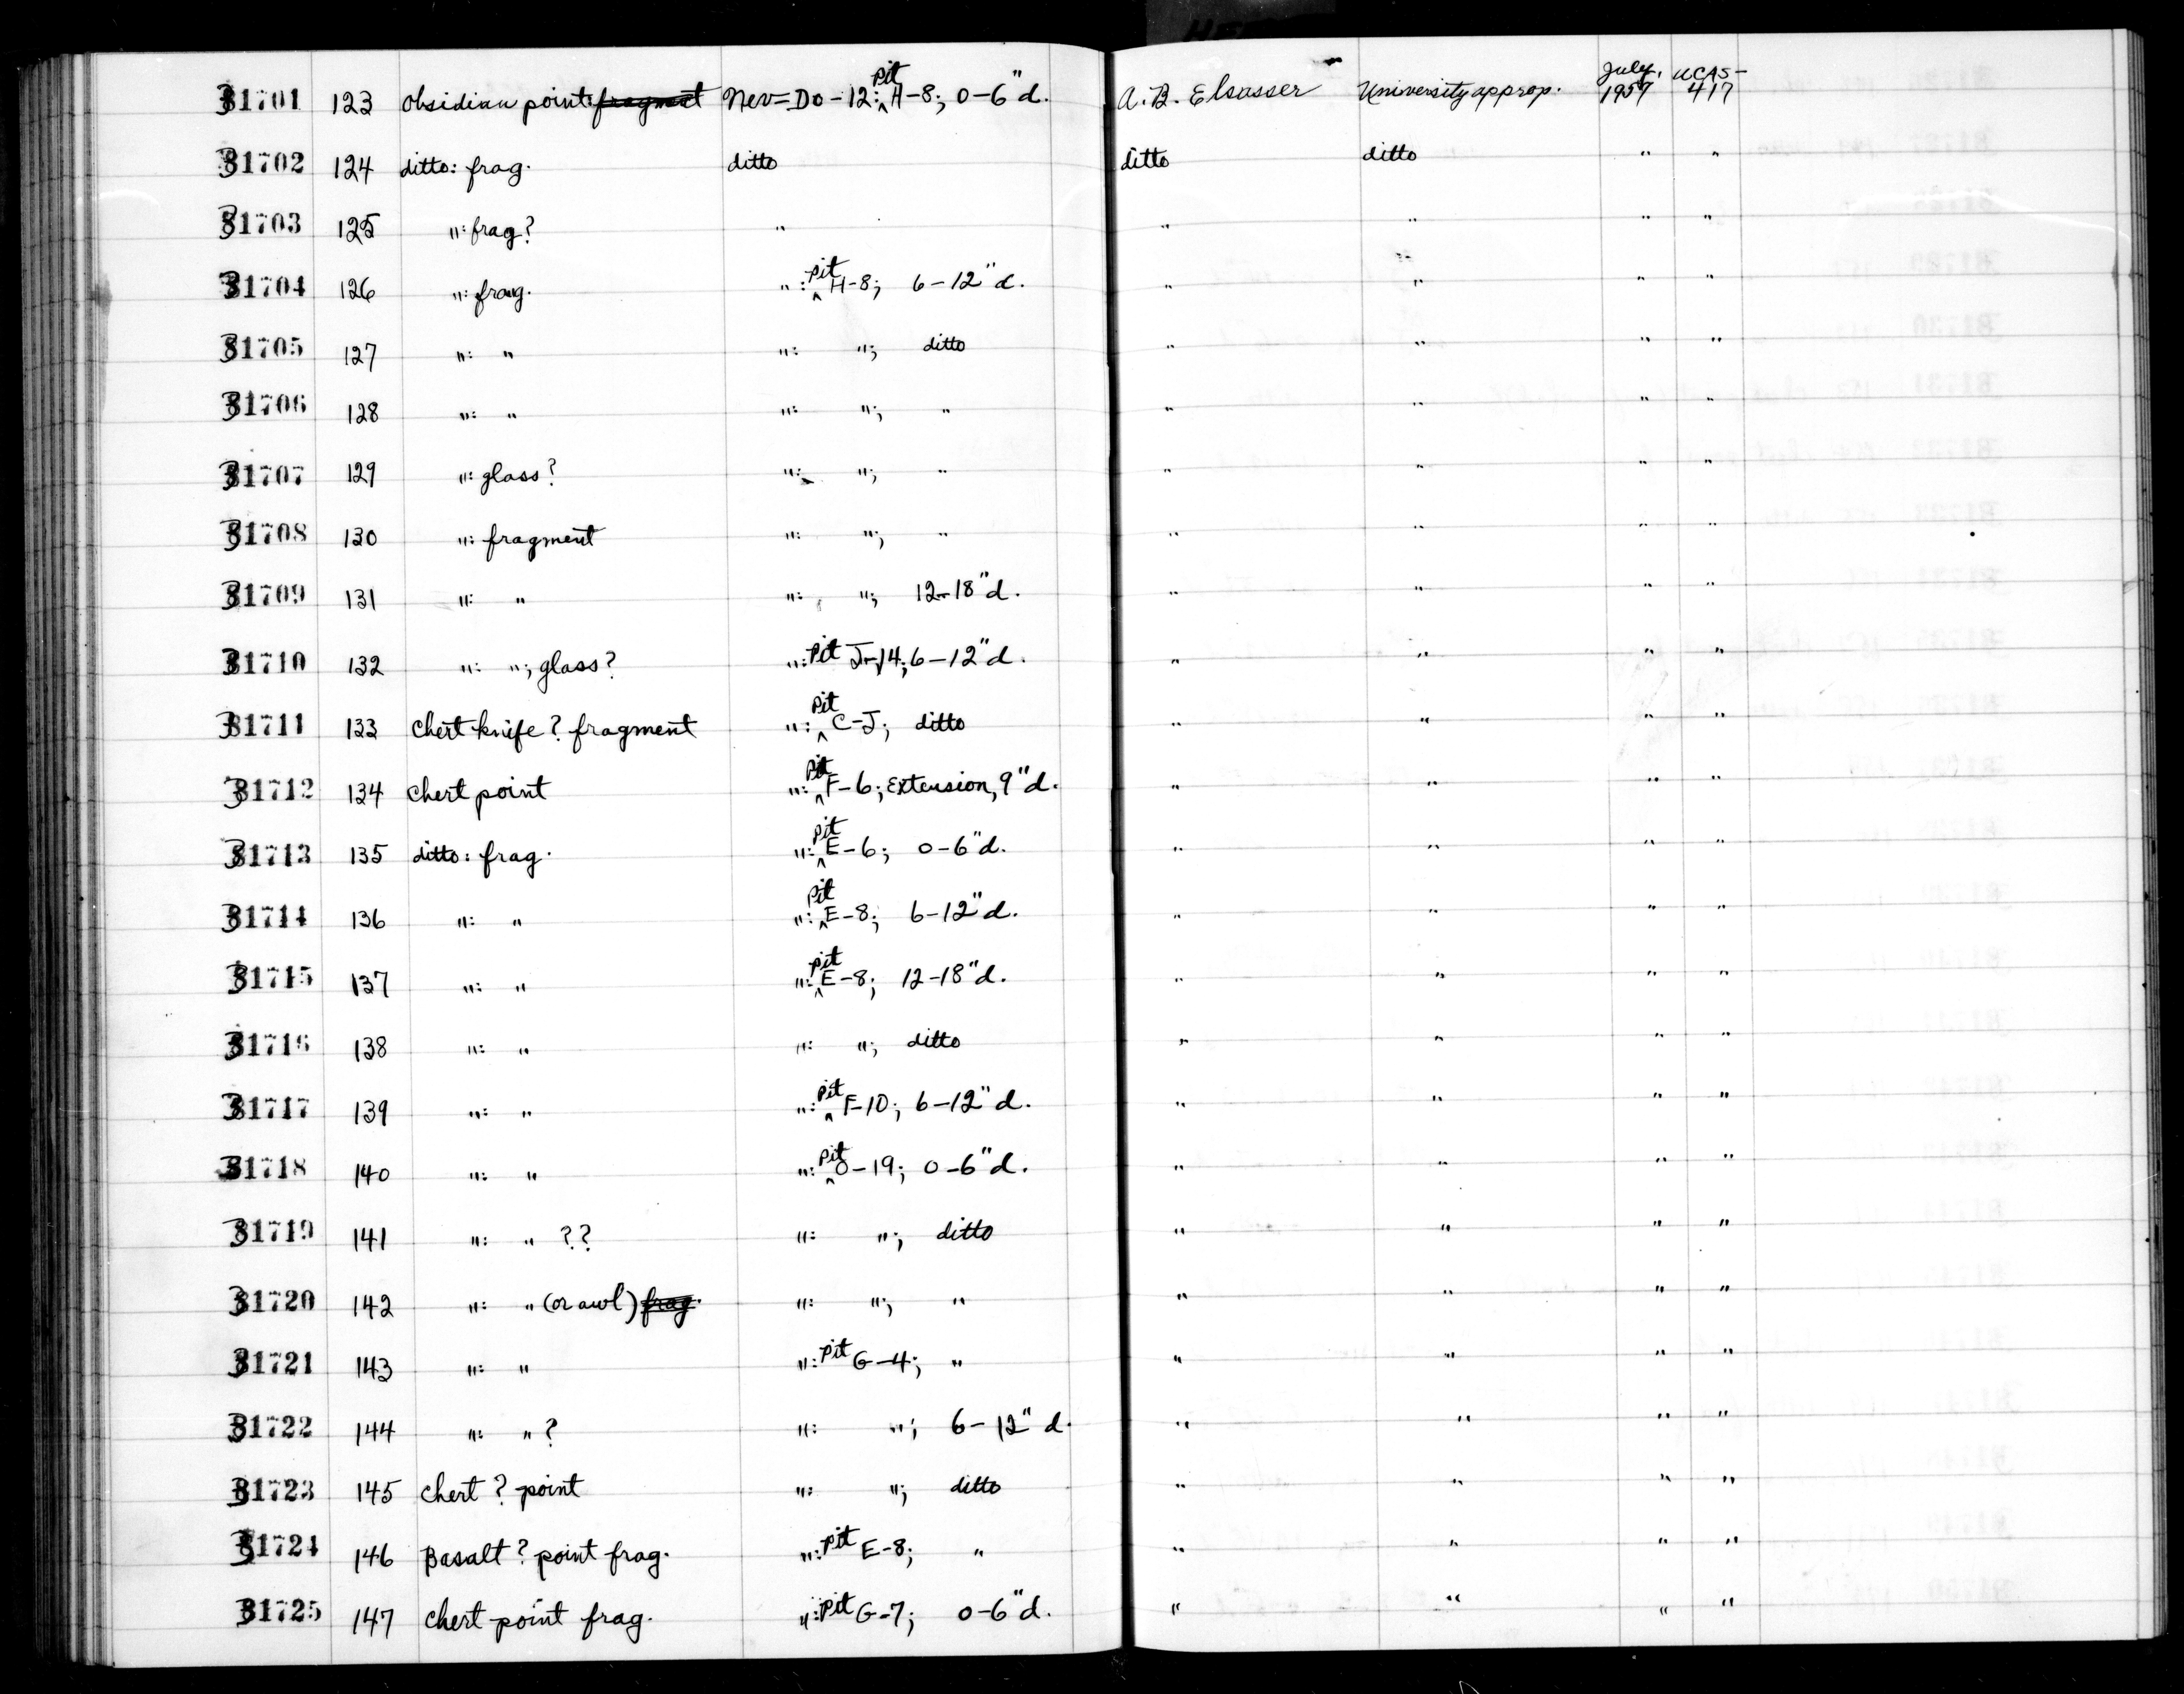 31701 123 Obsidian point: fragment Nev-Do-12: pit H-8; 0-6"d. A.B. Elsasser University approp. July, 1957 UCAS-417
31702 124 ditto: frag. ditto ditto ditto " "
31703 125 ": frag? " " " " "
31704 126 ": frag. ": pit H-8; 6-12"d. " " " "
31705 127 ": " ": "; ditto " " " "
31706 128 ": " ": "; " " " " "
31707 129 ": glass? ": "; " " " " "
31708 130 ": fragment ": "; " " " " "
31709 131 ": " ": "; 12-18"d. " " " "
31710 132 ": "; glass? ": Pit J-14; 6-12"d. " " " "
31711 133 Chert knife? fragment ": pit C-J; ditto " " " "
31712 134 Chert point ": pit F-6; Extension, 9"d. " " " "
31713 135 ditto: frag. ": pit E-6; 0-6"d. " " " "
31714 136 ": " ": pit E-8; 6-12"d. " " " "
31715 137 ": " ": pit E-8; 12-18"d. " " " "
31716 138 ": " ": "; ditto " " " "
31717 139 ": " ": pit F-10; 6-12"d. " " " "
31718 140 ": " ": pit O-19; 0-6"d. " " " "
31719 141 ": " ?? ": "; ditto " " " "
31720 142 ": " (or awl) frag. ": "; " " " " "
31721 143 ": " ": Pit G-4; " " " " "
31722 144 ": " ? ": "; 6-12"d. " " " "
31723 145 Chert? point ": "; ditto " " " "
31724 146 Basalt? point frag. ": Pit E-8; " " " " "
31725 147 Chert point frag. ": Pit G-7; 0-6"d. " " " "